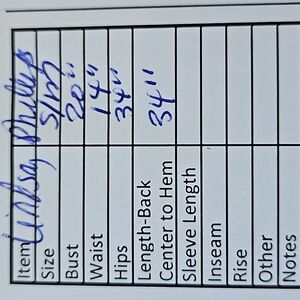 Item Lindsay Phillips
Size S/M
Bust 20"
Waist 14"
Hips 34"
Length-Back
Center to Hem 34"
Sleeve Length
Inseam
Rise
Other
Notes